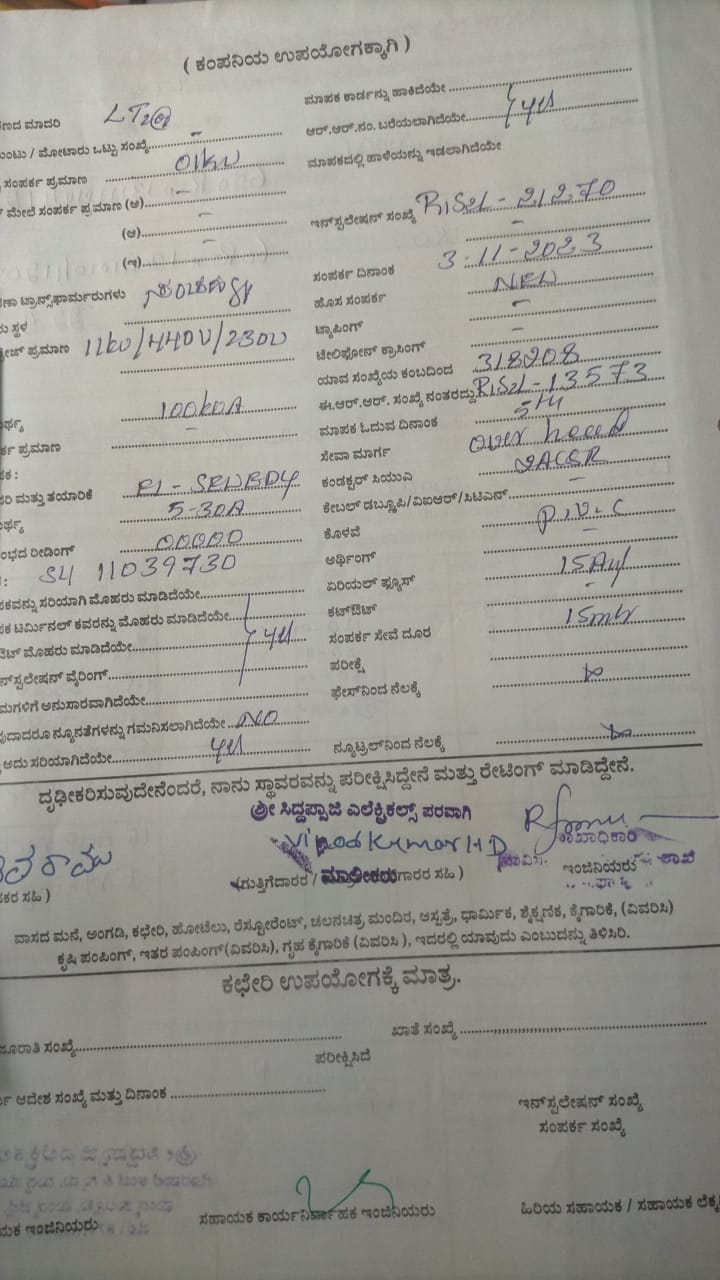 ( ಕಂಪನಿಯ ಉಪಯೋಗಕ್ಕಾಗಿ )
ಮಾಪಕ ಕಾರ್ಡನ್ನು ಹಾಕಿದೆಯೇ
ಮಾದರಿ LT2 ಆರ್.ಆರ್.ನಂ. ಬರೆಯಲಾಗಿದೆಯೇ yes
/ ಮೋಟಾರು ಒಟ್ಟು ಸಂಖ್ಯೆ - ಮಾಪಕದಲ್ಲಿ ಹಾಳೆಯನ್ನು ಇಡಲಾಗಿದೆಯೇ
ಸಂಪರ್ಕ ಪ್ರಮಾಣ 01kW
ಮೇಲೆ ಸಂಪರ್ಕ ಪ್ರಮಾಣ (ಅ) - ಇನ್‌ಸ್ಟಲೇಷನ್ ಸಂಖ್ಯೆ 21270
(ಆ) - -
(ಇ) - ಸಂಪರ್ಕ ದಿನಾಂಕ 3-11-2023
ಟ್ರಾನ್ಸ್‌ಫಾರ್ಮರುಗಳು ಹೊಸ ಸಂಪರ್ಕ NEW
ಸ್ಥಳ ಟ್ಯಾಪಿಂಗ್ -
ಪ್ರಮಾಣ 11kV/440V/230V ಟೆಲಿಫೋನ್ ಕ್ರಾಸಿಂಗ್ -
ಯಾವ ಸಂಖ್ಯೆಯ ಕಂಬದಿಂದ 318208
100kVA ಈ.ಆರ್.ಆರ್. ಸಂಖ್ಯೆ ನಂತರದ್ದು 13573
ಪ್ರಮಾಣ - ಮಾಪಕ ಓದುವ ದಿನಾಂಕ 5th
ಸೇವಾ ಮಾರ್ಗ over head
ಮತ್ತು ತಯಾರಿಕೆ ಕಂಡಕ್ಟರ್ ಸಿಯುಎ ACSR
5-30A ಕೇಬಲ್ ಡಬ್ಲ್ಯೂಪಿ/ವಿಐಆರ್/ಸಿಟಿಎಸ್ -
ರೀಡಿಂಗ್ 00000 ಕೊಳವೆ P.V.C
11039730 ಅರ್ಥಿಂಗ್ -
ಸರಿಯಾಗಿ ಮೊಹರು ಮಾಡಿದೆಯೇ ಏರಿಯಲ್ ಫ್ಯೂಸ್ 15
ಟರ್ಮಿನಲ್ ಕವರನ್ನು ಮೊಹರು ಮಾಡಿದೆಯೇ ಕಟ್‌ಔಟ್ -
ಮೊಹರು ಮಾಡಿದೆಯೇ yes ಸಂಪರ್ಕ ಸೇವೆ ದೂರ 15mtr
ವೈರಿಂಗ್ ಪರೀಕ್ಷೆ
ಅನುಸಾರವಾಗಿದೆಯೇ ಫೇಸ್‌ನಿಂದ ನೆಲಕ್ಕೆ
ನ್ಯೂನತೆಗಳನ್ನು ಗಮನಿಸಲಾಗಿದೆಯೇ NO
ಅದು ಸರಿಯಾಗಿದೆಯೇ yes ನ್ಯೂಟ್ರಲ್‌ನಿಂದ ನೆಲಕ್ಕೆ
ದೃಢೀಕರಿಸುವುದೇನೆಂದರೆ, ನಾನು ಸ್ಥಾವರವನ್ನು ಪರೀಕ್ಷಿಸಿದ್ದೇನೆ ಮತ್ತು ರೇಟಿಂಗ್ ಮಾಡಿದ್ದೇನೆ.
ಶ್ರೀ ಸಿದ್ದಪ್ಪಾಜಿ ಎಲೆಕ್ಟ್ರಿಕಲ್ಸ್ ಪರವಾಗಿ
Vinod Kumar H D ಶಾಖಾಧಿಕಾರಿ
ಸಹಿ ) (ಗುತ್ತಿಗೆದಾರರ / ಮಾಲೀಕರು ಸಹಿ ) ಇಂಜಿನಿಯರು ಶಾಖೆ
ವಾಸದ ಮನೆ, ಅಂಗಡಿ, ಕಛೇರಿ, ಹೋಟೆಲು, ರೆಸ್ಟೋರೆಂಟ್, ಚಲನಚಿತ್ರ ಮಂದಿರ, ಆಸ್ಪತ್ರೆ, ಧಾರ್ಮಿಕ, ಶೈಕ್ಷಣಿಕ, ಕೈಗಾರಿಕೆ, (ವಿವರಿಸಿ)
ಕೃಷಿ ಪಂಪಿಂಗ್, ಇತರ ಪಂಪಿಂಗ್(ವಿವರಿಸಿ), ಗೃಹ ಕೈಗಾರಿಕೆ (ವಿವರಿಸಿ ), ಇದರಲ್ಲಿ ಯಾವುದು ಎಂಬುದನ್ನು ತಿಳಿಸಿರಿ.
ಕಛೇರಿ ಉಪಯೋಗಕ್ಕೆ ಮಾತ್ರ.
ಸಂಖ್ಯೆ ಖಾತೆ ಸಂಖ್ಯೆ
ಪರೀಕ್ಷಿಸಿದೆ
ಆದೇಶ ಸಂಖ್ಯೆ ಮತ್ತು ದಿನಾಂಕ ಇನ್‌ಸ್ಟಲೇಷನ್ ಸಂಖ್ಯೆ
ಸಂಪರ್ಕ ಸಂಖ್ಯೆ
ಇಂಜಿನಿಯರು ಸಹಾಯಕ ಕಾರ್ಯನಿರ್ವಾಹಕ ಇಂಜಿನಿಯರು ಹಿರಿಯ ಸಹಾಯಕ / ಸಹಾಯಕ